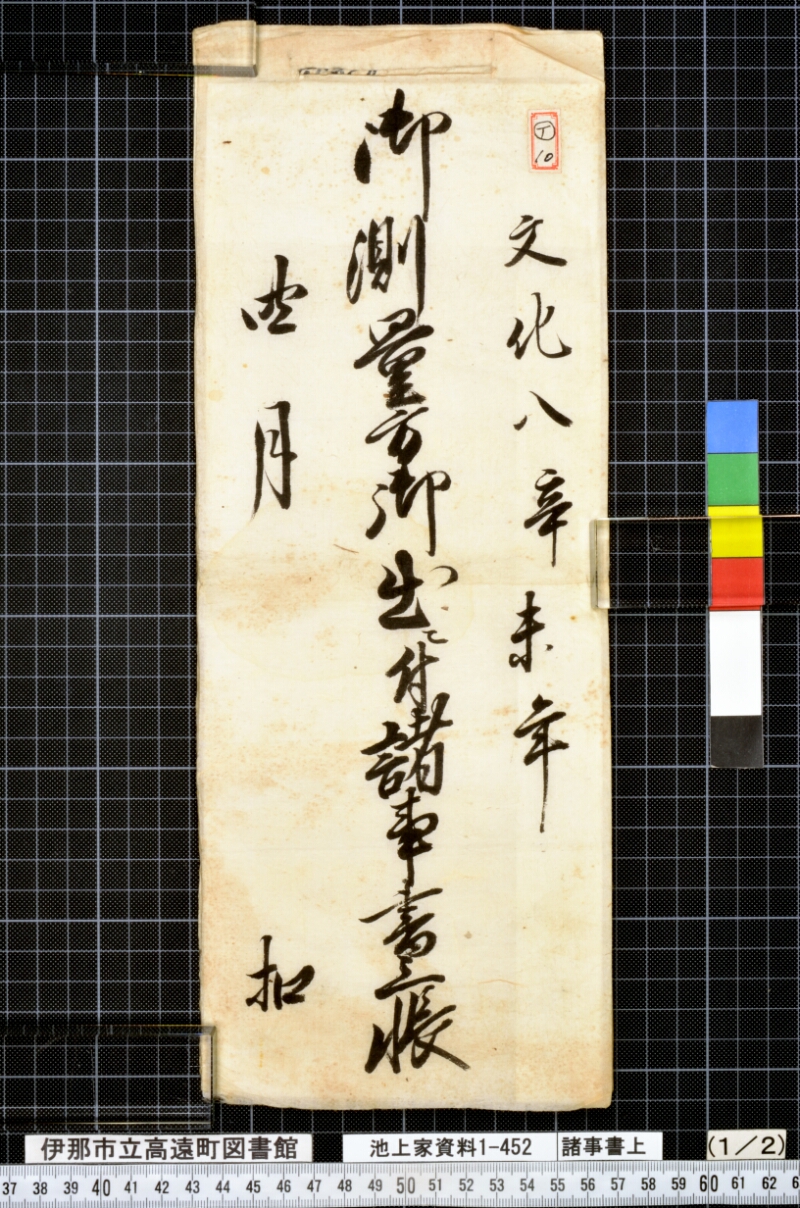 丁
10
文化八辛未年
御測量方御出ニ付諸事書上帳
四月
扣
伊那市立高遠町図書館
池上家資料1-452
諸事書上
(1/2)
37 38 39 40 41 42 43 44 45 46 47 48 49 50 51 52 53 54 55 56 57 58 59 60 61 62